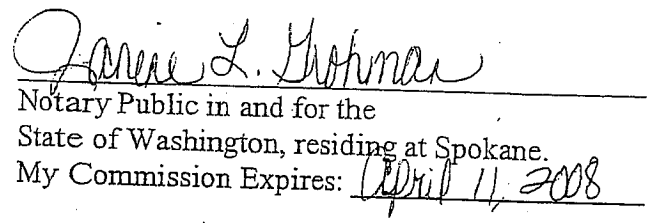 Janene L. Grohman
Notary Public in and for the
State of Washington, residing at Spokane.
My Commission Expires: April 11, 2008